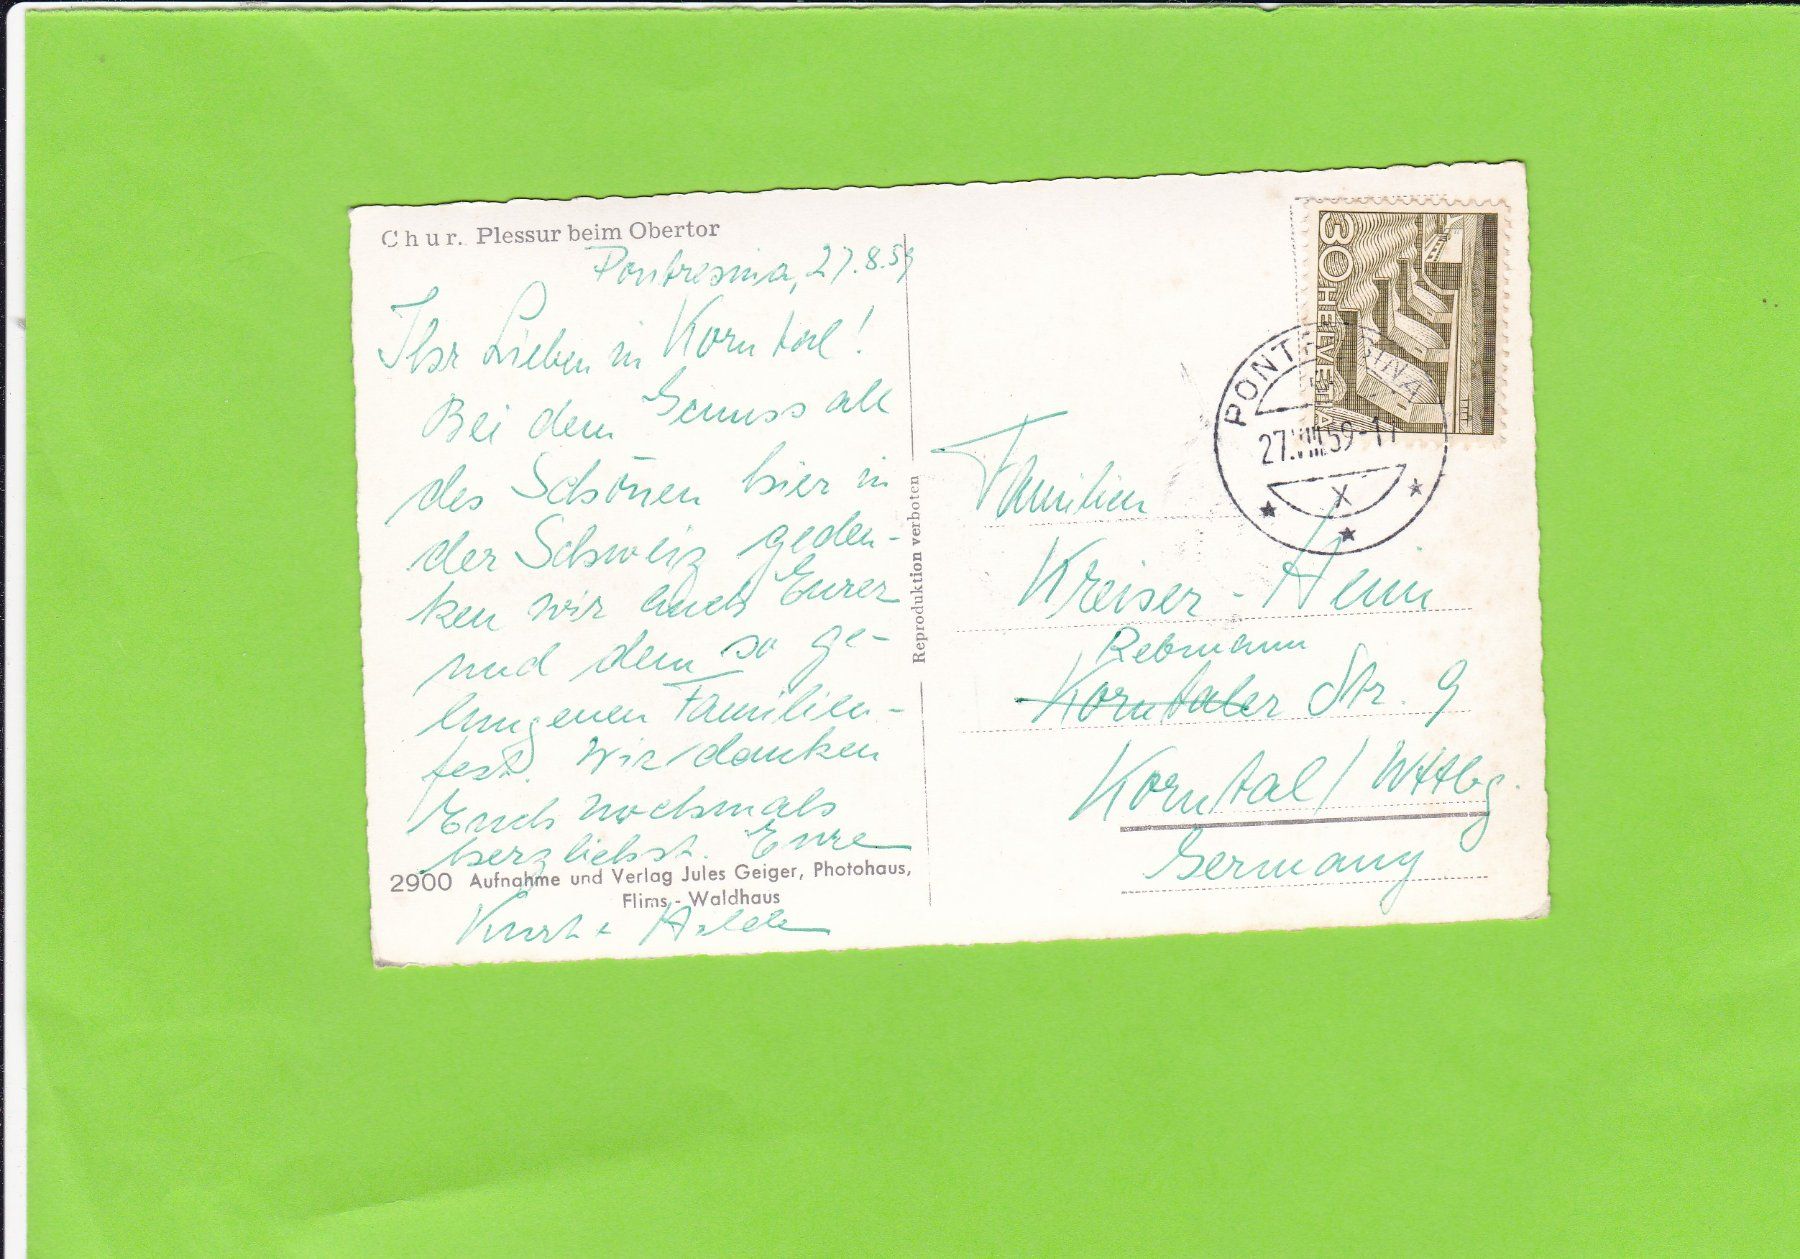 Chur. Plessur beim Obertor
Pontresina, 27.8.59
Ihr Lieben in Korntal!
Bei dem Genuss all
des Schönen hier in
der Schweiz geden-
ken wir auch Eurer
und dem so ge-
lungenen Familien-
fest. Wir danken
Euch nochmals
herzlichst. Eure
2900 Aufnahme und Verlag Jules Geiger, Photohaus,
Flims - Waldhaus
Kurt + Hilde
Reproduktion verboten
30 HELVETIA
PONTRESINA
27.VIII.59-17
X
Familien
Kreiser -
Rebmann
Korntaler Str. 9
Korntal / Wttbg.
Germany